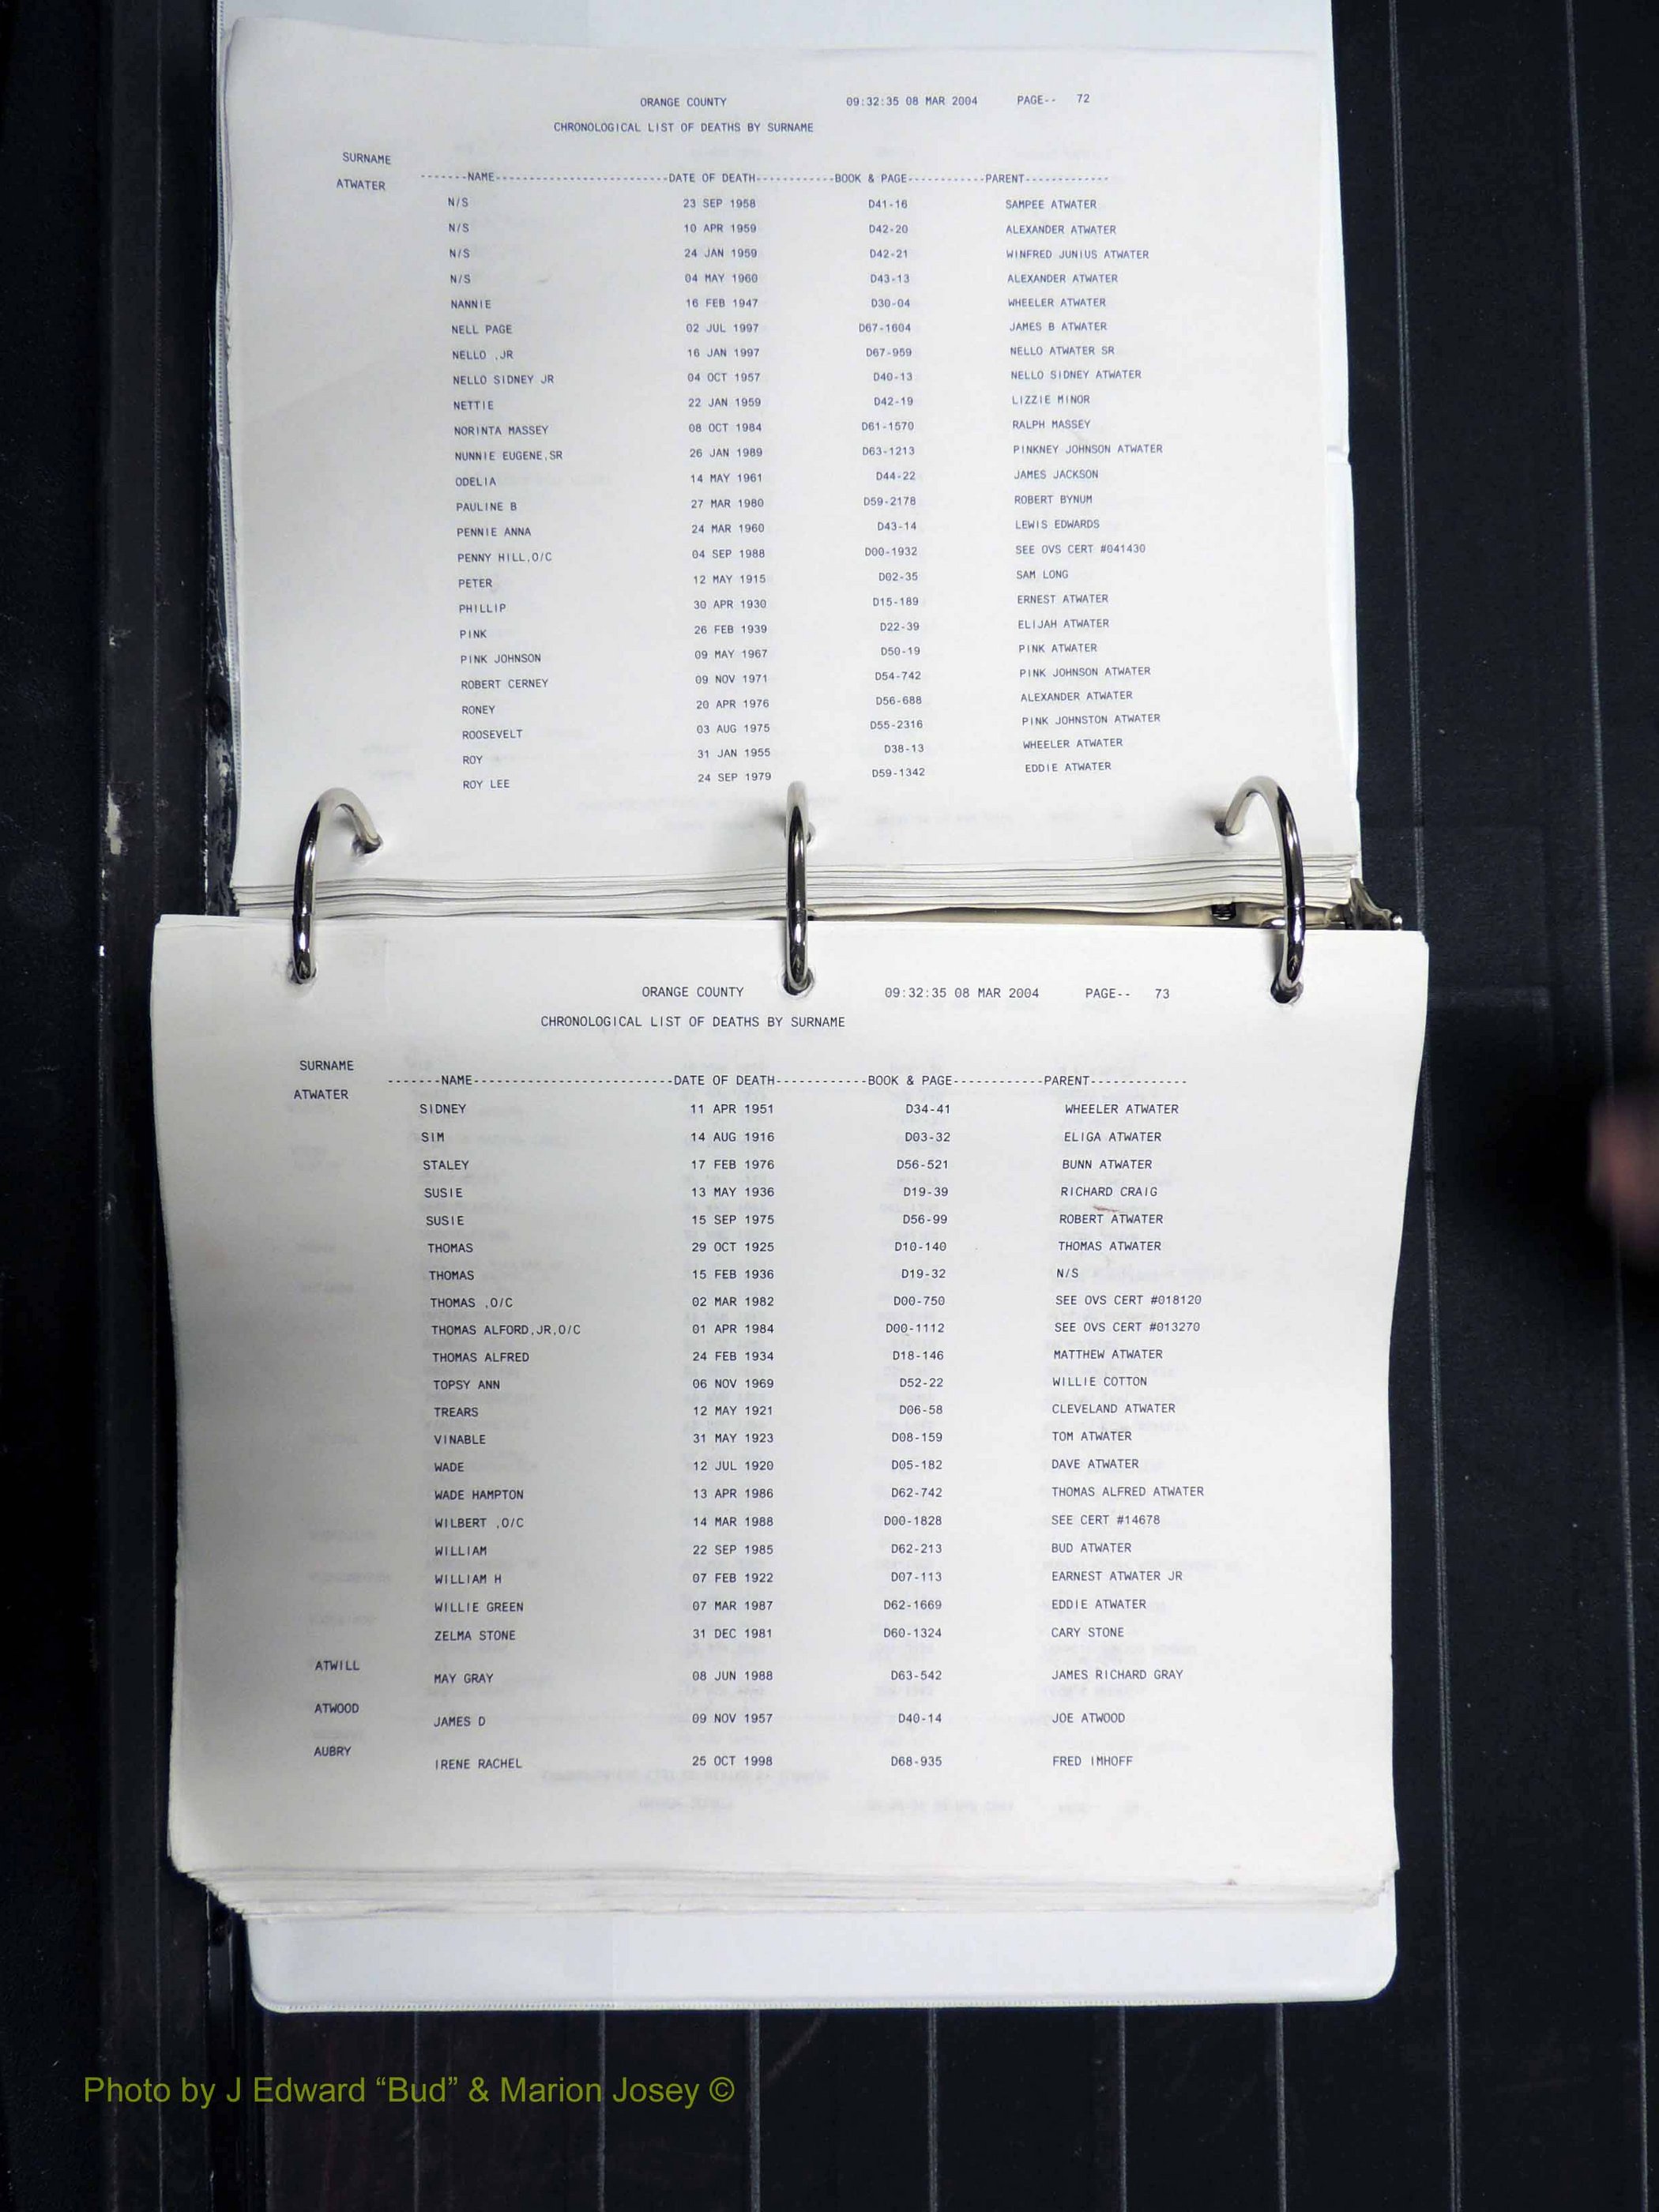 ORANGE COUNTY 09:32:35 08 MAR 2004 PAGE-- 72
CHRONOLOGICAL LIST OF DEATHS BY SURNAME
SURNAME
-------NAME-------------------------DATE OF DEATH-----------BOOK & PAGE-----------PARENT------------
ATWATER
N/S 23 SEP 1958 D41-16 SAMPEE ATWATER
N/S 10 APR 1959 D42-20 ALEXANDER ATWATER
N/S 24 JAN 1959 D42-21 WINFRED JUNIUS ATWATER
N/S 04 MAY 1960 D43-13 ALEXANDER ATWATER
NANNIE 16 FEB 1947 D30-04 WHEELER ATWATER
NELL PAGE 02 JUL 1997 D67-1604 JAMES B ATWATER
NELLO ,JR 16 JAN 1997 D67-959 NELLO ATWATER SR
NELLO SIDNEY JR 04 OCT 1957 D40-13 NELLO SIDNEY ATWATER
NETTIE 22 JAN 1959 D42-19 LIZZIE MINOR
NORINTA MASSEY 08 OCT 1984 D61-1570 RALPH MASSEY
NUNNIE EUGENE,SR 26 JAN 1989 D63-1213 PINKNEY JOHNSON ATWATER
ODELIA 14 MAY 1961 D44-22 JAMES JACKSON
PAULINE B 27 MAR 1980 D59-2178 ROBERT BYNUM
PENNIE ANNA 24 MAR 1960 D43-14 LEWIS EDWARDS
PENNY HILL,O/C 04 SEP 1988 D00-1932 SEE OVS CERT #041430
PETER 12 MAY 1915 D02-35 SAM LONG
PHILLIP 30 APR 1930 D15-189 ERNEST ATWATER
PINK 26 FEB 1939 D22-39 ELIJAH ATWATER
PINK JOHNSON 09 MAY 1967 D50-19 PINK ATWATER
ROBERT CERNEY 09 NOV 1971 D54-742 PINK JOHNSON ATWATER
RONEY 20 APR 1976 D56-688 ALEXANDER ATWATER
ROOSEVELT 03 AUG 1975 D55-2316 PINK JOHNSTON ATWATER
ROY 31 JAN 1955 D38-13 WHEELER ATWATER
ROY LEE 24 SEP 1979 D59-1342 EDDIE ATWATER
ORANGE COUNTY 09:32:35 08 MAR 2004 PAGE-- 73
CHRONOLOGICAL LIST OF DEATHS BY SURNAME
SURNAME
-------NAME-------------------------DATE OF DEATH-----------BOOK & PAGE-----------PARENT------------
ATWATER
SIDNEY 11 APR 1951 D34-41 WHEELER ATWATER
SIM 14 AUG 1916 D03-32 ELIGA ATWATER
STALEY 17 FEB 1976 D56-521 BUNN ATWATER
SUSIE 13 MAY 1936 D19-39 RICHARD CRAIG
SUSIE 15 SEP 1975 D56-99 ROBERT ATWATER
THOMAS 29 OCT 1925 D10-140 THOMAS ATWATER
THOMAS 15 FEB 1936 D19-32 N/S
THOMAS ,O/C 02 MAR 1982 D00-750 SEE OVS CERT #018120
THOMAS ALFORD,JR,O/C 01 APR 1984 D00-1112 SEE OVS CERT #013270
THOMAS ALFRED 24 FEB 1934 D18-146 MATTHEW ATWATER
TOPSY ANN 06 NOV 1969 D52-22 WILLIE COTTON
TREARS 12 MAY 1921 D06-58 CLEVELAND ATWATER
VINABLE 31 MAY 1923 D08-159 TOM ATWATER
WADE 12 JUL 1920 D05-182 DAVE ATWATER
WADE HAMPTON 13 APR 1986 D62-742 THOMAS ALFRED ATWATER
WILBERT ,O/C 14 MAR 1988 D00-1828 SEE CERT #14678
WILLIAM 22 SEP 1985 D62-213 BUD ATWATER
WILLIAM H 07 FEB 1922 D07-113 EARNEST ATWATER JR
WILLIE GREEN 07 MAR 1987 D62-1669 EDDIE ATWATER
ZELMA STONE 31 DEC 1981 D60-1324 CARY STONE
ATWILL
MAY GRAY 08 JUN 1988 D63-542 JAMES RICHARD GRAY
ATWOOD
JAMES D 09 NOV 1957 D40-14 JOE ATWOOD
AUBRY
IRENE RACHEL 25 OCT 1998 D68-935 FRED IMHOFF
Photo by J Edward “Bud” & Marion Josey ©